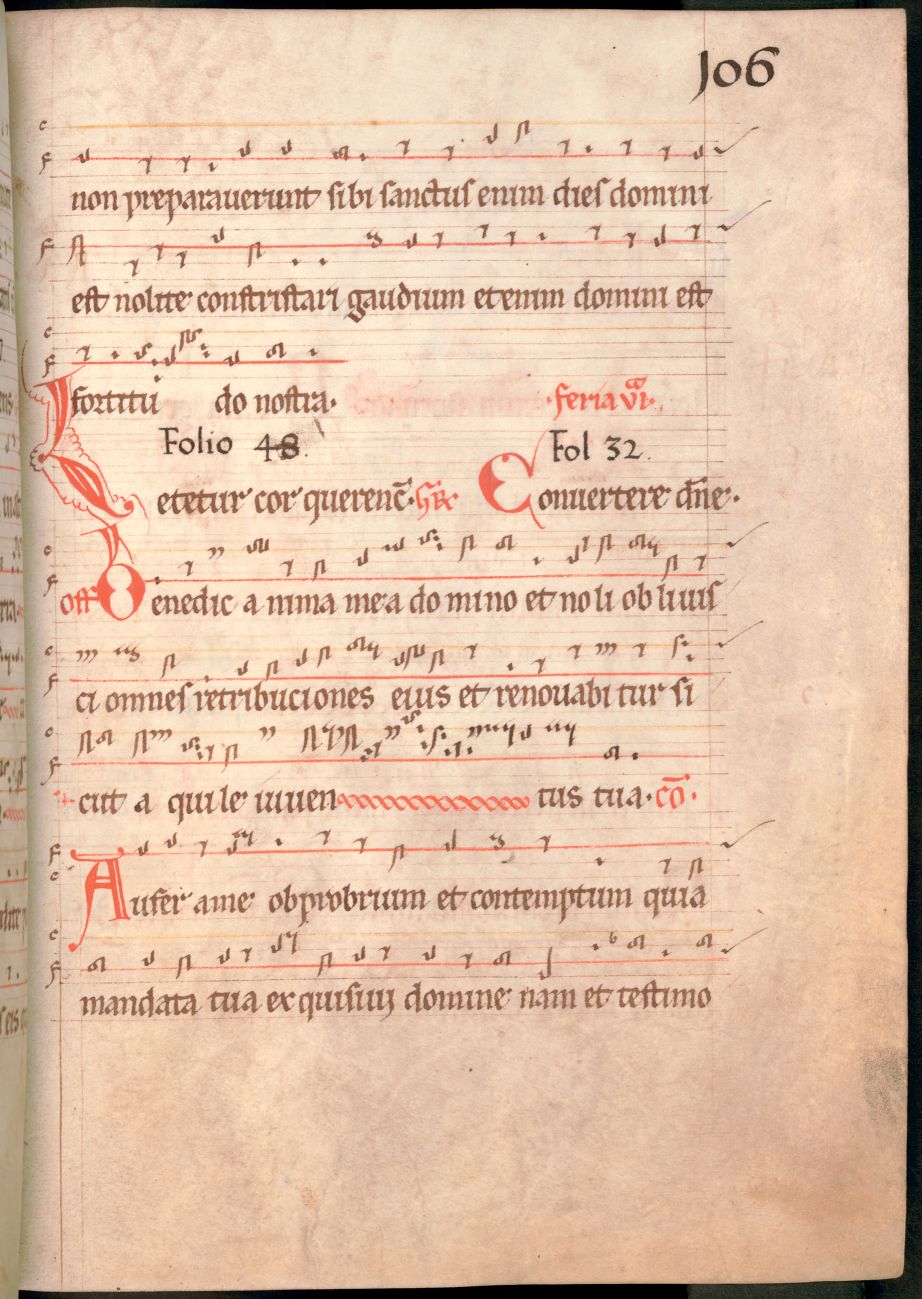 106
non preparauerunt sibi sanctus enim dies domini
est nolite constristari gaudium etenim domini est
fortitu do nostra. feria vi.
Folio 48. Fol 32.
Letetur cor querenc̄. Gr̄ Conuertere dn̄e.
off Benedic a nima mea do mino et no li ob liuis
ci omnes retribuciones eius et renouabi tur si
cut a qui le iuuen tus tua. cō.
Aufer a me obprobrium et contemptum quia
mandata tua exquisiuj domine nam et testimo